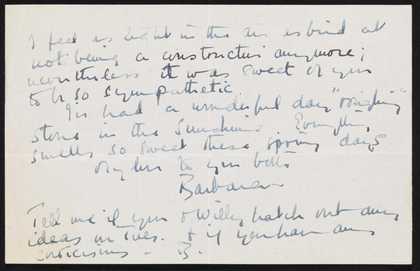 I feel as light in the air as bird at
not being a constructivist anymore;
nevertheless it was sweet of you
to be so sympathetic
I've had a wonderful day "roughing"
stone in the sunshine. Everything
smells so sweet these spring days
love to you both
Barbara
Tell me if you & Willy hatch out any
ideas in & if you have any
criticisms - B.